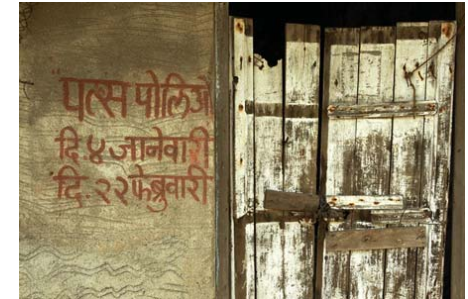 पल्स पोलिओ
दि.४ जानेवारी
दि.२२ फेब्रुवारी